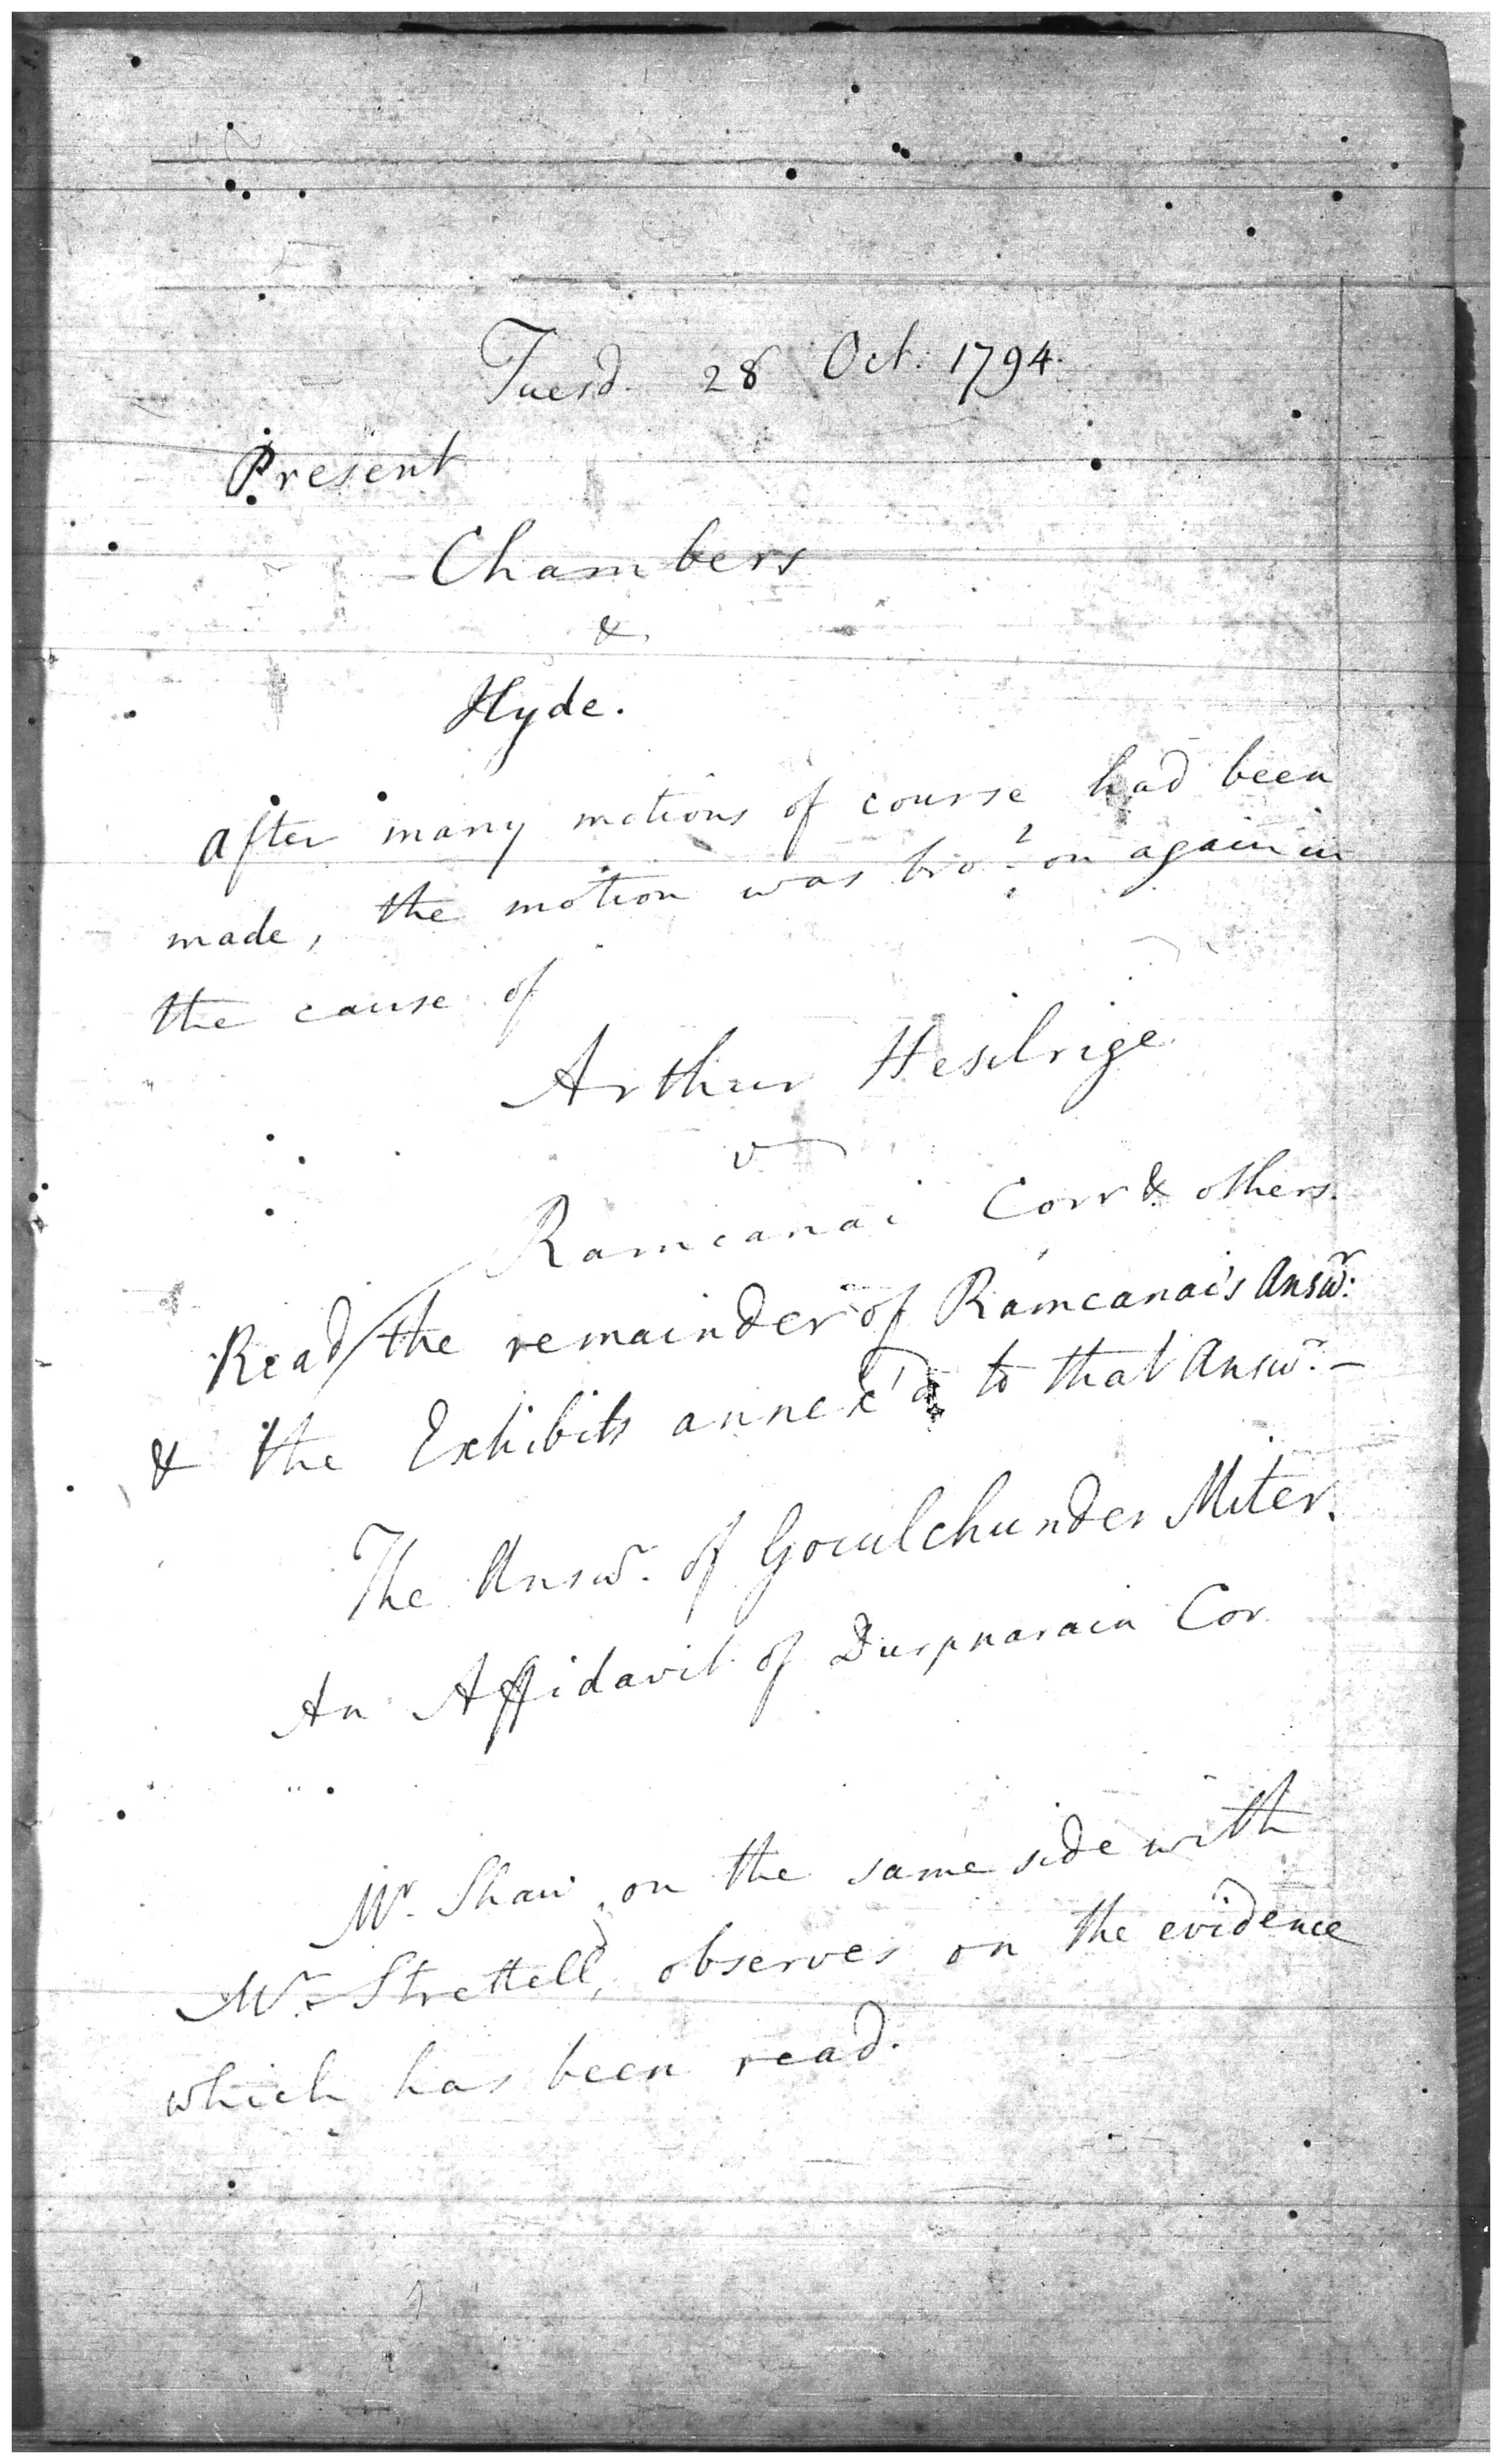 Tuesd. 28 Oct. 1794.
Present
Chambers
&
Hyde.
After many motions of course had been
made, the motion was bro.t on again in
the cause of
Arthur Hesilrige
v
Ramcanai Corr & others.
Read the remainder of Ramcanai's Answr:
& the Exhibits annex'd to that Answr. —
The Answr. of Gocul chunder Miter.
An Affidavit of Durpnarain Cor
Mr. Shaw, on the same side with
Mr. Strettell, observes on the evidence
which has been read.